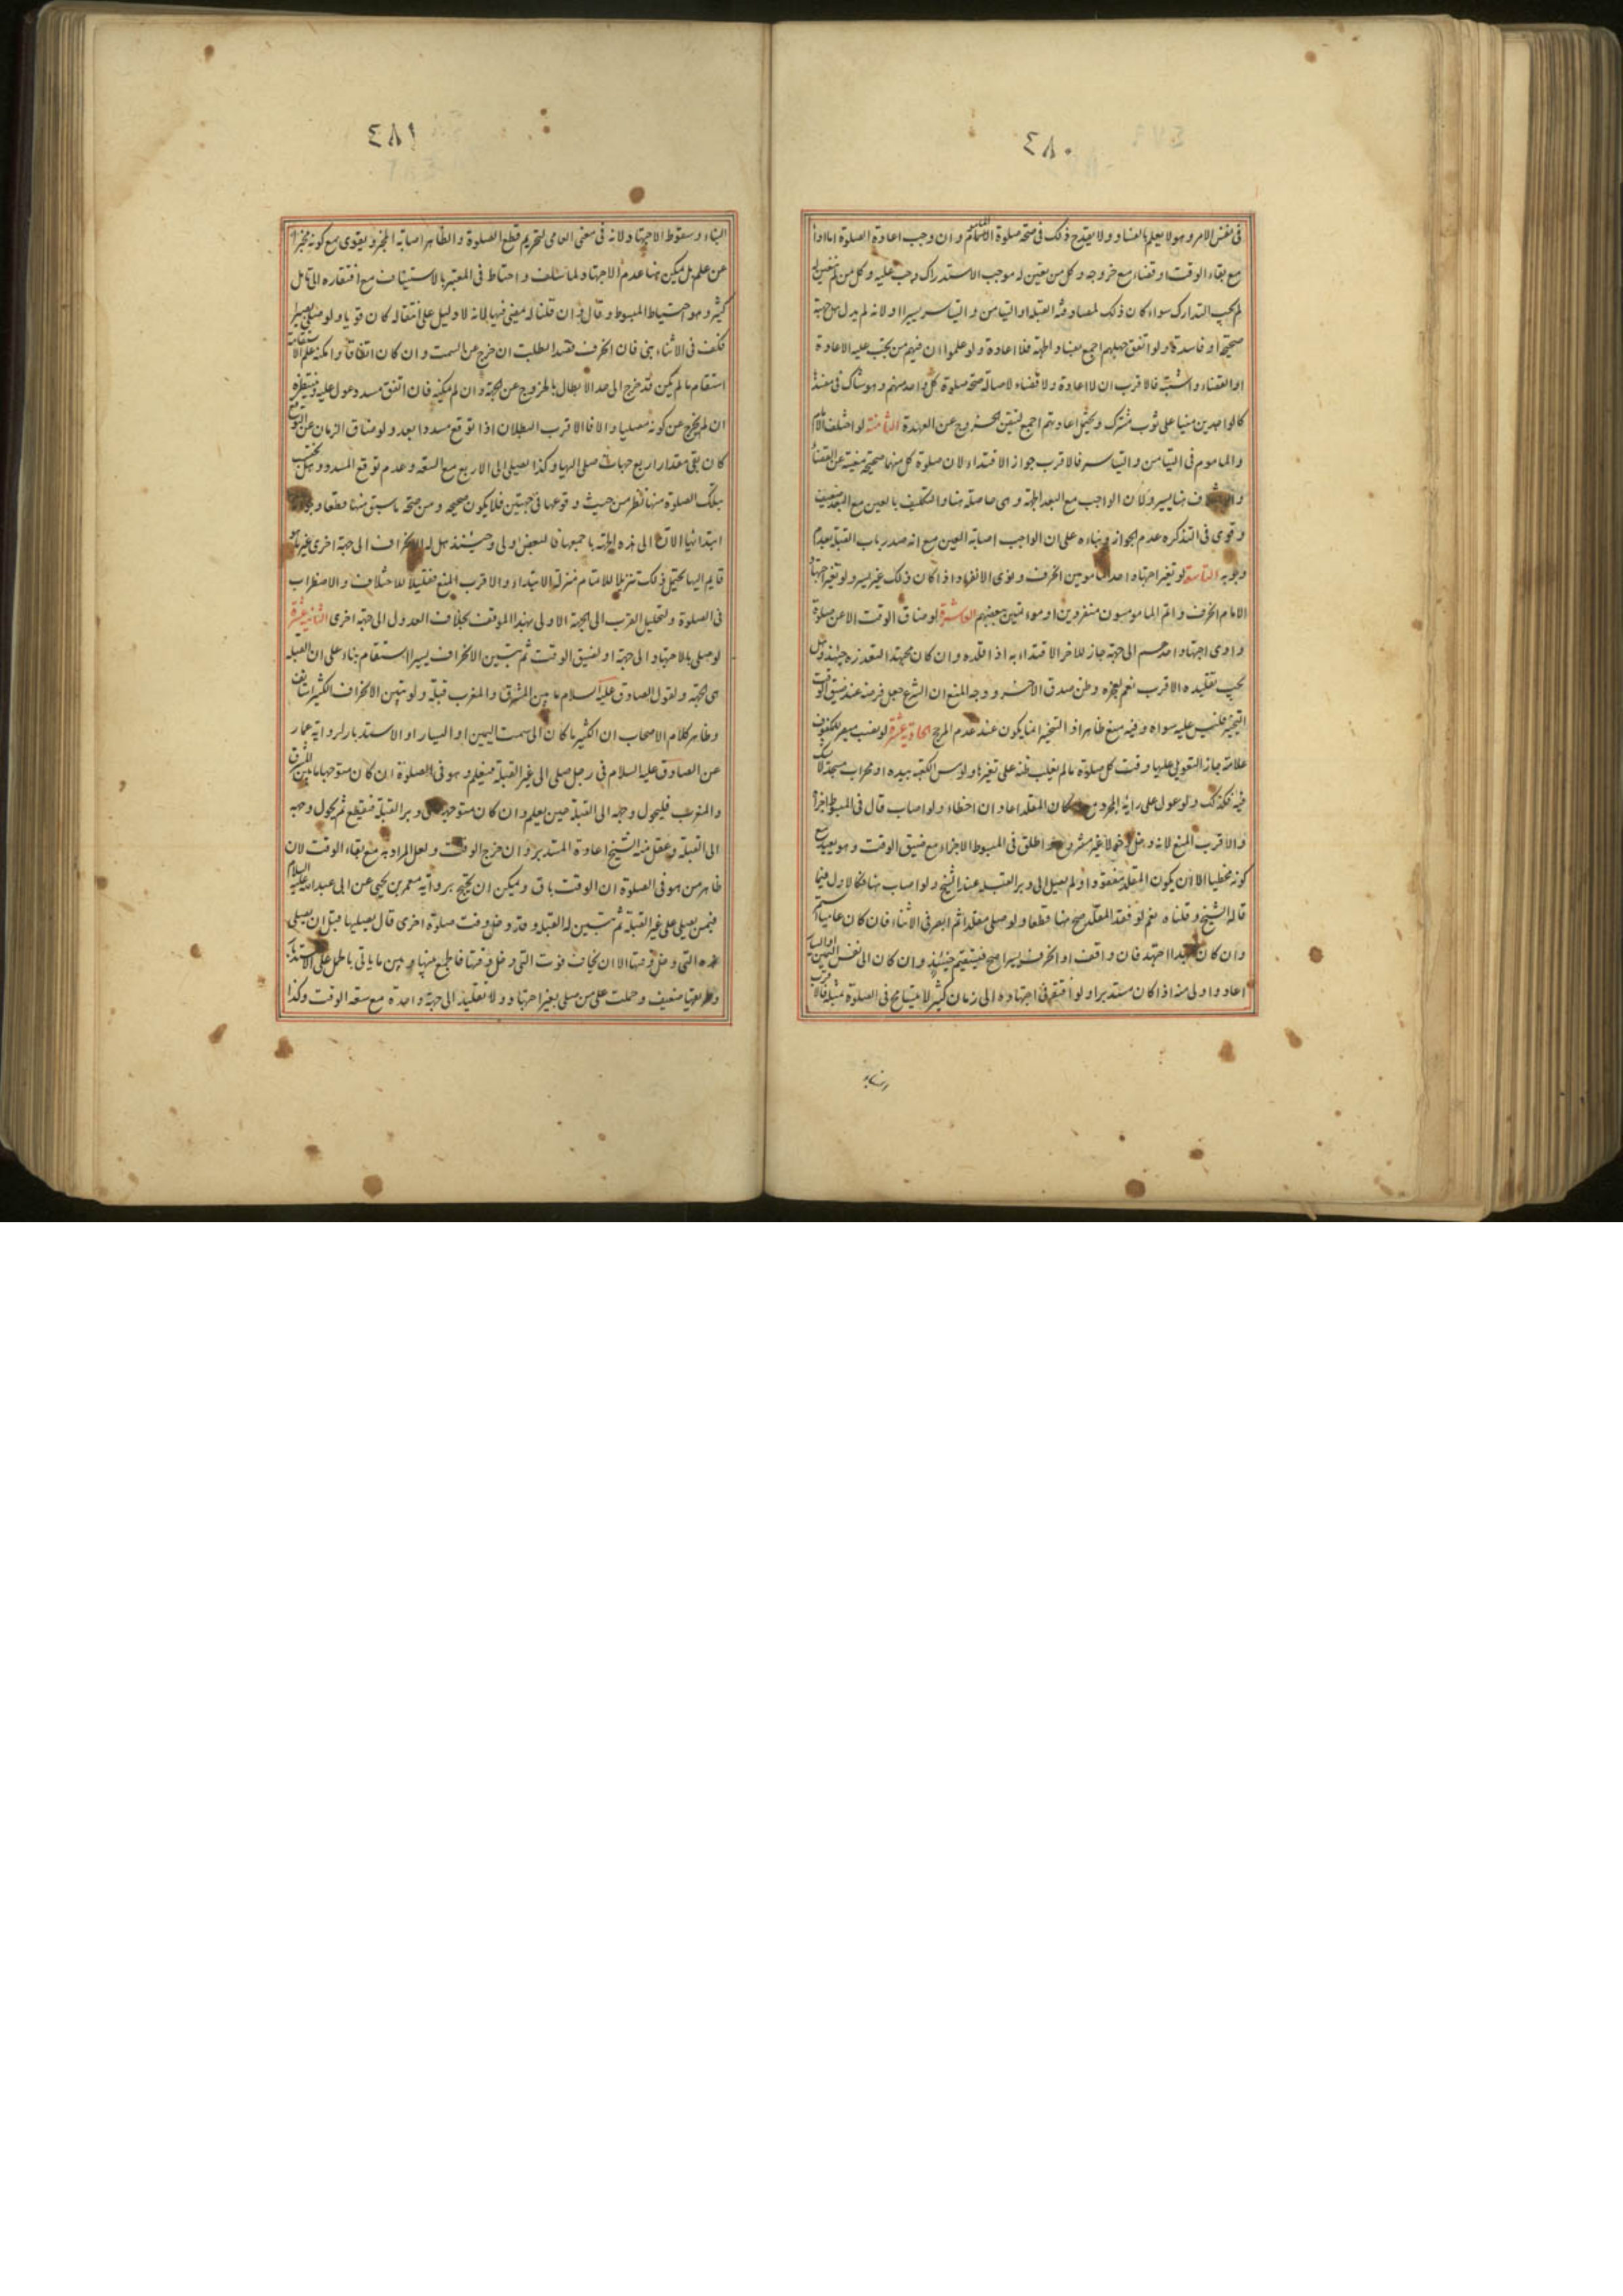 ٤٨٠
فى نفس الامر وهو لا يعلم بالفساد ولا يقدح ذلك فى صحة صلوة الامام وان وجب اعادة الصلوة اما اداءً
مع بقاء الوقت او قضاء مع خروجه وكل من تعين له موجب الاستدراك وجب عليه وكل من لم يتعين له
لم يجب التدارك سواء كان ذلك لمصادفة القبلة او التيامن والتياسر يسيرا اولانه لم يدر هل جهة
صحيحة او فاسدة ولو اتفق جهلهم اجمع بفساد الجهة فلا اعادة ولو علموا ان فيهم من يجب عليه الاعادة
او القضاء واشتبه فالاقرب ان لا اعادة ولا قضاء لاصالة صحة صلوة كل واحد منهم وهو شاك فى مفسدها
كالواجدين منيا على ثوب مشترك ويحتمل اعادتهم اجمع لتيقن الخروج عن العهدة الثامنة لو اختلف الامام
والماموم فى التيامن والتياسر فالاقرب جواز الاقتداء لان صلوة كل منهما صحيحة مغنية عن القضاء
والاختلاف هنا يسير ولان الواجب مع البعد الجهة وهى حاصلة هنا والتكليف بالعين مع البعد ضعيف
وقوى فى التذكرة عدم الجواز وبناءه على ان الواجب اصابة العين مع انه صدر باب القبلة بعدم
وجوبه التاسعة لو تغير اجتهاد احد المامومين انحرف ونوى الانفراد اذا كان ذلك غير يسير ولو تغير اجتهاد
الامام انحرف واتم المامومون منفردين او مؤتمين ببعضهم العاشرة لو ضاق الوقت الا عن صلوة
وادى اجتهاد احدهم الى جهة جاز للاخر الاقتداء به اذا قلده وان كان مجتهدا لتعذره حينئذ وهل
يجب تقليده الاقرب نعم لعجزه وظن صدق الاخر ووجه المنع ان الشرع جعل فرضه عند ضيق الوقت
التخيير فليس عليه سواه وفيه منع ظاهر اذ التخيير انما يكون عند عدم المرجح الحادية عشرة لو نصب مبصر للمكفوف
علامة جاز التعويل عليها وقت كل صلوة ما لم يغلب ظنه على تغيرها ولو مس الكعبة بيده او محراب مسجد لا شك
فيه فكذلك ولو عول على رأيه المجرد مع امكان المقلد اعاد ان اخطاء ولو اصاب قال فى المبسوط اجزأه
والاقرب المنع لانه دخل دخولا غير مشروع واطلق فى المبسوط الاجزاء مع ضيق الوقت وهو بعيد مع
كونه مخطيا الا ان يكون المقلد مفقودا او لم يصل الى دبر القبلة عند الشيخ ولو اصاب هنا فكالاول فيما
قاله الشيخ وقلناه نعم لو فقد المقلد صح هنا قطعا ولو صلى مقلدا ثم ابصر فى الاثناء فان كان عاميا استمر
وان كان مجتهدا اجتهد فان وافق او انحرف يسيرا صح فيستقيم حينئذ وان كان الى نفس اليمين او اليسار
اعاد واولى منه اذا كان مستدبرا ولو افتقر فى اجتهاده الى زمان كثير لا يتسامح فى الصلوة بمثله فالاقرب
٤٨١
البناء وسقوط الاجتهاد لانه فى معنى العامى لتحريم قطع الصلوة والظاهر اصابة المخبر ويقوى مع كونه مخبرا
عن علم بل يمكن هنا عدم الاجتهاد لما سلف واحتاط فى المعتبر بالاستيناف مع افتقاره الى تامل
كثير وهو احتياط المبسوط وقال فيه ان قلنا له يمضى فيها لانه لا دليل على انتقاله كان قويا ولو صلى بصيرا
فكف فى الاثناء بنى فان انحرف قصدا بطلت ان خرج عن السمت وان كان اتفاقا وامكنه علم الاستقامة
استقام ما لم يكن قد خرج الى حد الابطال بالخروج عن الجهة وان لم يمكنه فان اتفق مسدد عول عليه وينتظره
ان لم يخرج عن كونه مصليا والا فالاقرب البطلان اذا توقع مسددا بعد ولو ضاق الزمان عن التوقع
كان بقى مقدار اربع جهات صلى اليها وكذا يصلى الى الاربع مع السعة وعدم توقع المسدد وهل يحتسب
بتلك الصلوة منها نظر من حيث وقوعها فى جهتين فلا يكون صحيحه ومن صحة ما سبق منها قطعا وجواز
ابتدائها الان الى هذه الجهة باجمعها فالبعض اولى وحينئذ هل له الانحراف الى جهة اخرى غير ما هو
قايم اليها يحتمل ذلك تنزيلا للاتمام منزلة الابتداء والاقرب المنع تقليلا للاختلاف والاضطراب
فى الصلوة ولتحليل القرب الى الجهة الاولى بهذا الموقف بخلاف العدول الى جهة اخرى الثانية عشرة
لو صلى بالاجتهاد الى جهة او لضيق الوقت ثم تبين الانحراف يسيرا استقام بناء على ان القبلة
هى الجهة ولقول الصادق عليه السلام ما بين المشرق والمغرب قبلة ولو تبين الانحراف الكثير استانف
وظاهر كلام الاصحاب ان الكثير ما كان الى سمت اليمين او اليسار او الاستدبار لرواية عمار
عن الصادق عليه السلام فى رجل صلى الى غير القبلة فيعلم وهو فى الصلوة ان كان متوجها ما بين المشرق
والمغرب فليحول وجهه الى القبلة حين يعلم وان كان متوجها الى دبر القبلة فليقطع ثم يحول وجهه
الى القبلة وعقل منه الشيخ اعادة المستدبر وان خرج الوقت ولعل المراد به مع بقاء الوقت لان
ظاهر من هو فى الصلوة ان الوقت باق ويمكن ان يحتج برواية معمر بن يحيى عن ابى عبد الله عليه السلام
فيمن يصلى على غير القبلة ثم تبين له القبلة وقد دخل وقت صلوة اخرى قال يصليها قبل ان يصلى
هذه التى دخل وقتها الا ان يخاف فوت التى دخل وقتها فالجمع بينها وبين ما ياتى بالحمل على الاستدبار
وطريقها ضعيف وحملت على من صلى بغير اجتهاد ولا تقليد الى جهة واحدة مع سعة الوقت وكذا